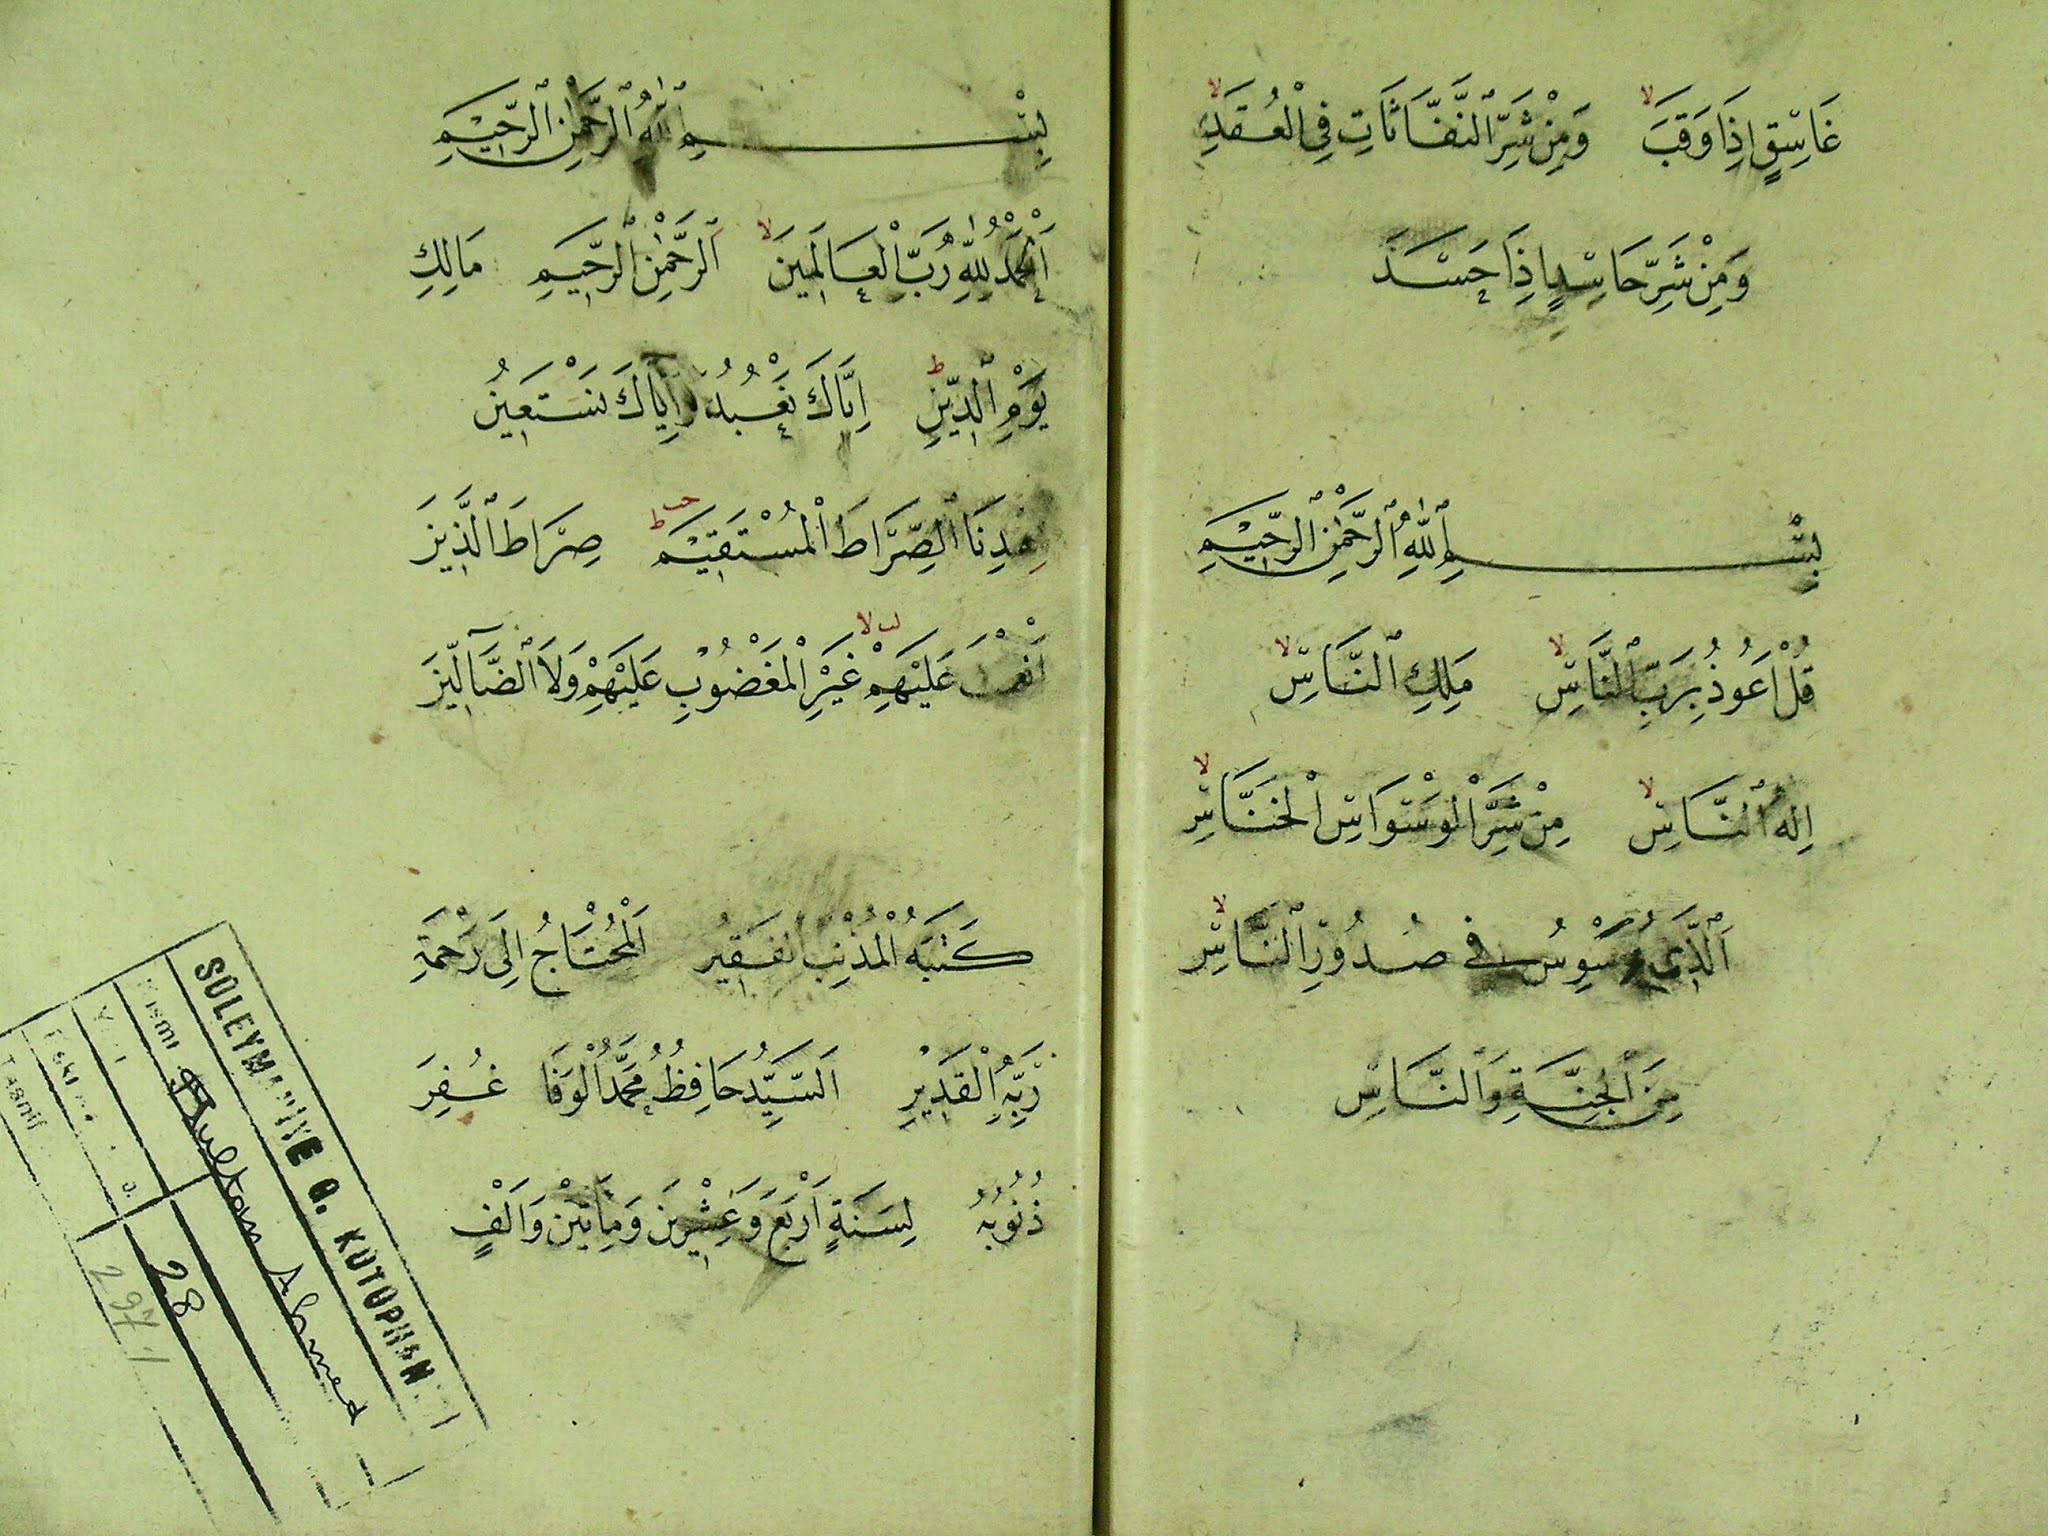 غَاسِقٍ اِذَا وَقَبَ لا وَمِنْ شَرِّ النَّفَّاثَاتِ فِي الْعُقَدِ لا
وَمِنْ شَرِّ حَاسِدٍ اِذَا حَسَدَ
بِسْمِ اللّٰهِ الرَّحْمٰنِ الرَّحِيمِ
قُلْ اَعُوذُ بِرَبِّ النَّاسِ لا مَلِكِ النَّاسِ لا
اِلٰهِ النَّاسِ لا مِنْ شَرِّ الْوَسْوَاسِ الْخَنَّاسِ لا
اَلَّذِي يُوَسْوِسُ فِي صُدُورِ النَّاسِ لا
مِنَ الْجِنَّةِ وَالنَّاسِ
بِسْمِ اللّٰهِ الرَّحْمٰنِ الرَّحِيمِ
اَلْحَمْدُ لِلّٰهِ رَبِّ الْعَالَمِينَ لا اَلرَّحْمٰنِ الرَّحِيمِ مَالِكِ
يَوْمِ الدِّينِ ط اِيَّاكَ نَعْبُدُ وَاِيَّاكَ نَسْتَعِينُ
اِهْدِنَا الصِّرَاطَ الْمُسْتَقِيمَ صِرَاطَ الَّذِينَ
اَنْعَمْتَ عَلَيْهِمْ غَيْرِ الْمَغْضُوبِ عَلَيْهِمْ وَلَا الضَّٓالِّينَ
كَتَبَهُ الْمُذْنِبُ الْفَقِيرُ اَلْمُحْتَاجُ اِلَى رَحْمَةِ
رَبِّهِ الْقَدِيرِ اَلسَّيِّدُ حَافِظُ مُحَمَّدُ الْوَفَا غُفِرَ
ذُنُوبُهُ لِسَنَةِ اَرْبَعَ وَعِشْرِينَ وَمِاَتَيْنِ وَاَلْفٍ
SÜLEYMANİYE G. KÜTÜPHANESİ
Kısmı Sultan Ahmed
28
297.1
Tasnif